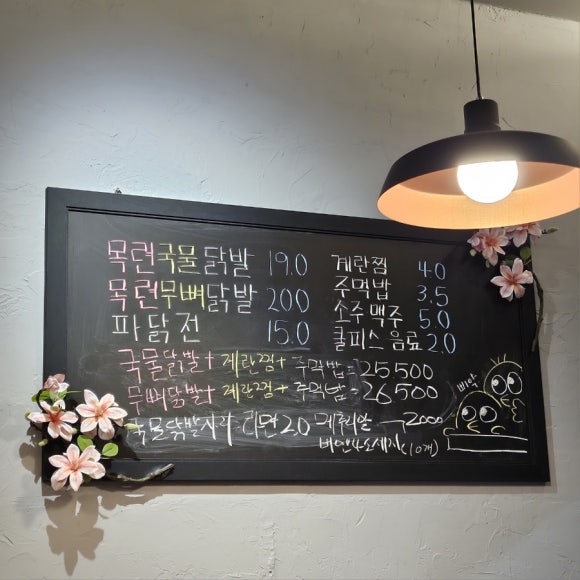 목련국물닭발 19.0
목련무뼈닭발 20.0
파닭전 15.0
계란찜 4.0
주먹밥 3.5
소주 맥주 5.0
쿨피스 음료 2.0
국물닭발+ 계란찜+ 주먹밥=25500
무뼈닭발+ 계란찜+ 주먹밥=26,500
국물닭발사리 라면 2.0 메추리알
비엔나소세지(10개) 2000
삐약